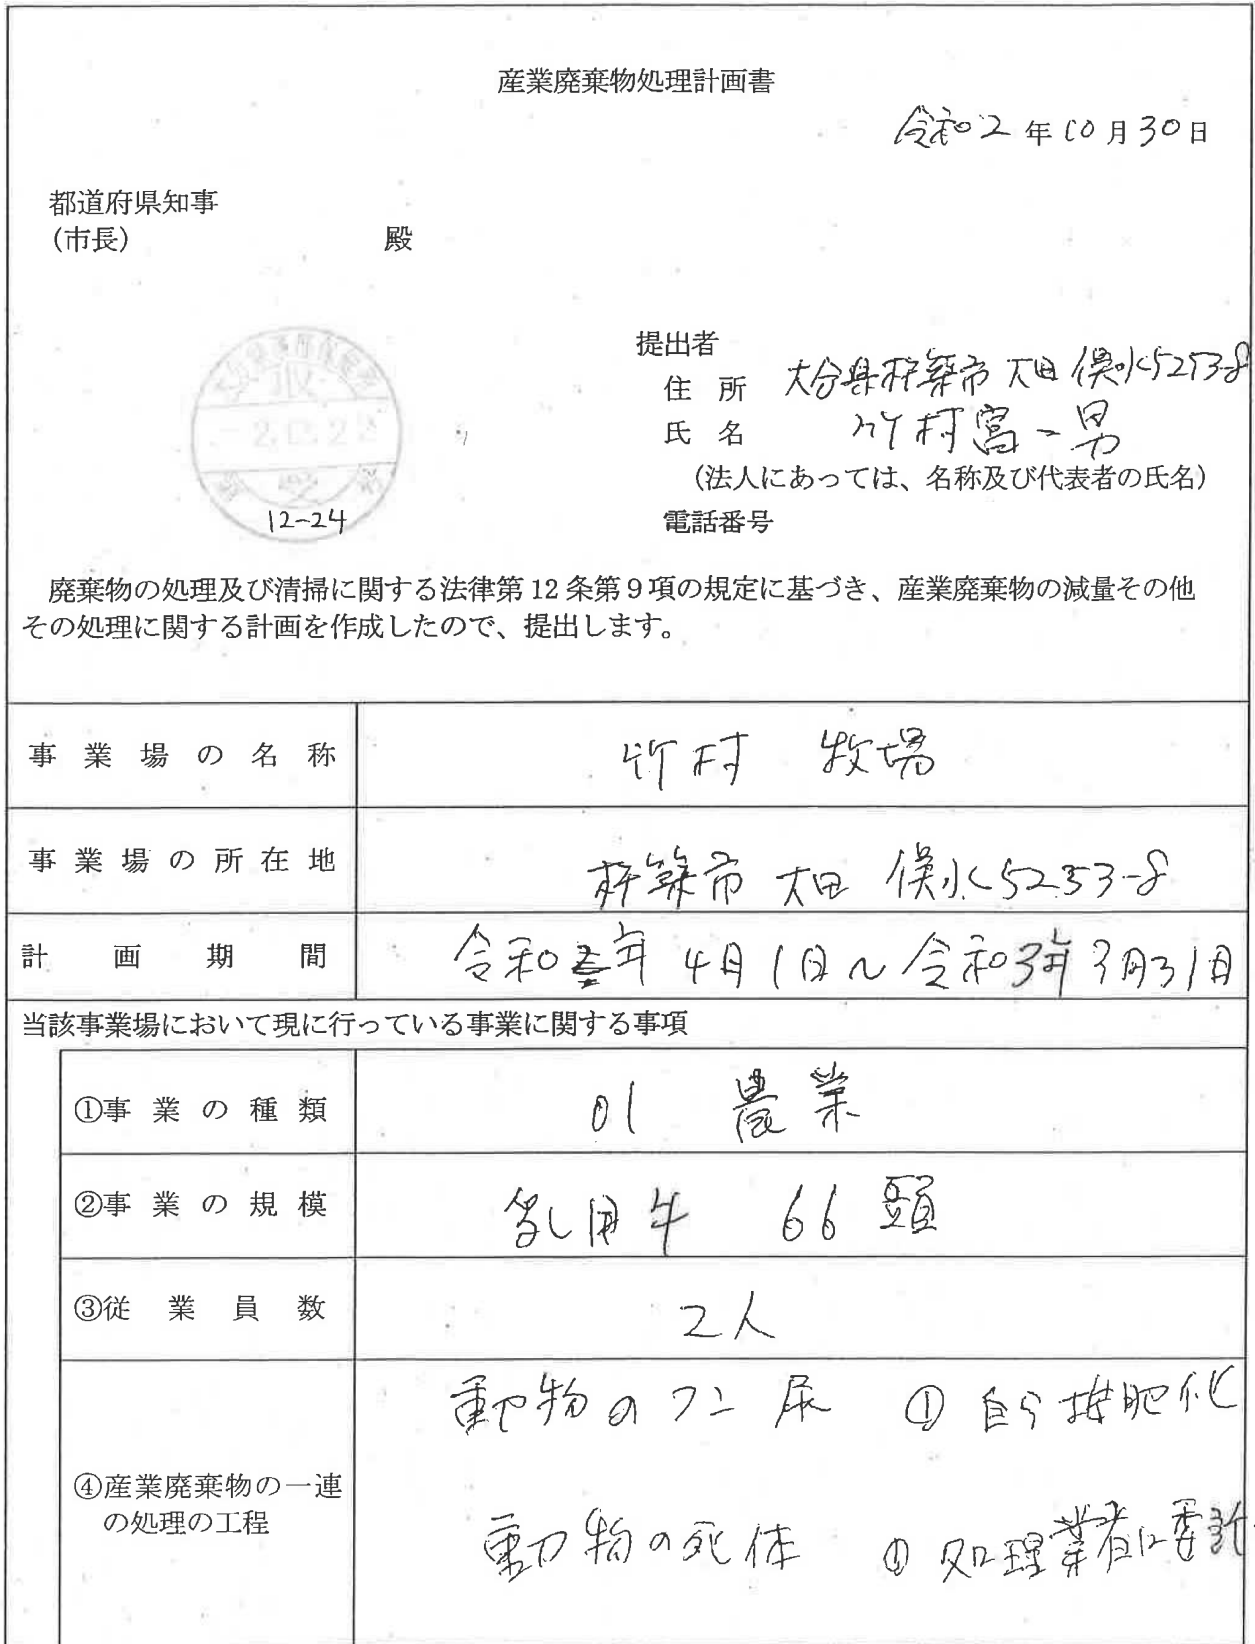 産業廃棄物処理計画書
令和2年10月30日
都道府県知事
(市長) 殿
提出者
住所 大分県杵築市大田俣水5253-8
氏名 竹村富一男
(法人にあっては、名称及び代表者の氏名)
電話番号
収
受
12-24
廃棄物の処理及び清掃に関する法律第12条第9項の規定に基づき、産業廃棄物の減量その他
その処理に関する計画を作成したので、提出します。
事業場の名称 竹村 牧場
事業場の所在地 杵築市 大田 俣水5253-8
計画期間 令和 年4月1日~令和3年3月31日
当該事業場において現に行っている事業に関する事項
①事業の種類 01 農業
②事業の規模 乳用牛 66頭
③従業員数 2人
④産業廃棄物の一連
の処理の工程
動物のフン尿 ① 自ら堆肥化
動物の死体 ① 処理業者に委託